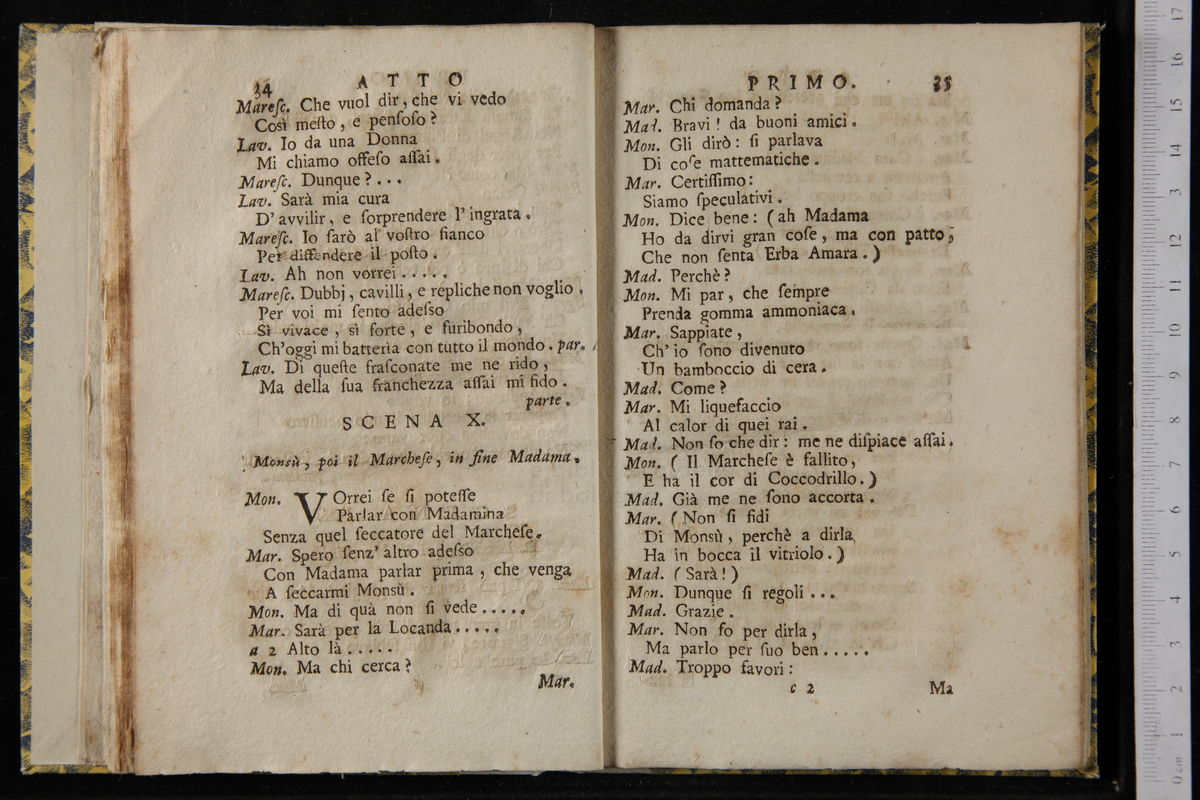 34 ATTO
Mareſc. Che vuol dir, che vi vedo
Così meſto, e penſoſo?
Lav. Io da una Donna
Mi chiamo offeſo aſſai.
Mareſc. Dunque?...
Lav. Sarà mia cura
D' avvilir, e ſorprendere l' ingrata.
Mareſc. Io ſarò al voſtro fianco
Per diffendere il poſto.
Lav. Ah non vorrei.....
Mareſc. Dubbj, cavilli, e repliche non voglio.
Per voi mi ſento adeſso
Sì vivace, sì forte, e furibondo,
Ch'oggi mi batteria con tutto il mondo. par.
Lav. Di queſte fraſconate me ne rido,
Ma della ſua franchezza aſſai mi fido.
parte.
SCENA X.
Monsù, poi il Marcheſe, in fine Madama.
Mon. VOrrei ſe ſi poteſſe
Parlar con Madamina
Senza quel ſeccatore del Marcheſe.
Mar. Spero ſenz' altro adeſso
Con Madama parlar prima, che venga
A ſeccarmi Monsù.
Mon. Ma di quà non ſi vede.....
Mar. Sarà per la Locanda.....
a 2 Alto là.....
Mon. Ma chi cerca?
Mar.
PRIMO. 35
Mar. Chi domanda?
Mad. Bravi! da buoni amici.
Mon. Gli dirò: ſi parlava
Di coſe mattematiche.
Mar. Certiſſimo:
Siamo ſpeculativi.
Mon. Dice bene: (ah Madama
Ho da dirvi gran coſe, ma con patto,
Che non ſenta Erba Amara.)
Mad. Perchè?
Mon. Mi par, che ſempre
Prenda gomma ammoniaca.
Mar. Sappiate,
Ch' io ſono divenuto
Un bamboccio di cera.
Mad. Come?
Mar. Mi liquefaccio
Al calor di quei rai.
Mad. Non ſo che dir: me ne diſpiace aſſai.
Mon. (Il Marcheſe è fallito,
E ha il cor di Coccodrillo.)
Mad. Già me ne ſono accorta.
Mar. (Non ſi fidi
Di Monsù, perchè a dirla
Ha in bocca il vitriolo.)
Mad. (Sarà!)
Mon. Dunque ſi regoli...
Mad. Grazie.
Mar. Non fo per dirla,
Ma parlo per ſuo ben.....
Mad. Troppo favori:
c 2 Ma
0 cm 1 2 3 4 5 6 7 8 9 10 11 12 13 14 15 16 17